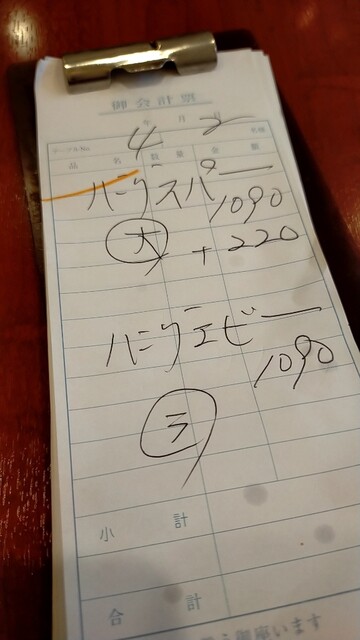 御会計票
年 月 日
4 2
テーブルNo. 名様
品 名 数 量 金 額
ハンバーグスパ 1090
大 +220
ハンバーグエビ
1090
ラ
小 計
合 計
御座います